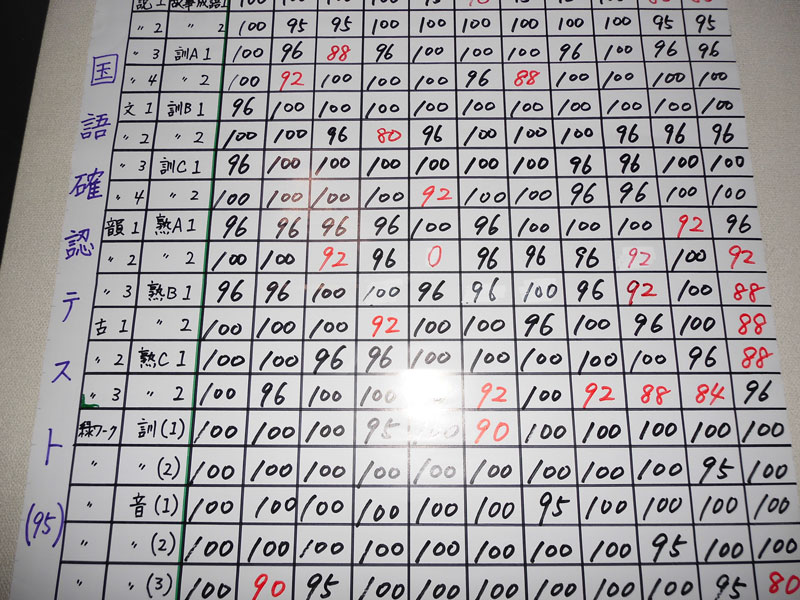 国語確認テスト(95)
〃 2 〃 2 100 95 95 100 100 100 100 100 95 95
〃 3 訓A1 100 96 88 96 100 100 100 96 100 96 96
〃 4 〃 2 100 92 100 100 100 96 88 100 100 100 100
文1 訓B1 96 100 100 100 100 100 100 100 100 100 100
〃 2 〃 2 100 100 96 80 96 100 100 100 96 96 96
〃 3 訓C1 96 100 100 100 100 100 100 96 96 100 100
〃 4 〃 2 100 100 100 100 92 100 100 96 96 100 100
韻1 熟A1 96 96 96 96 100 96 100 100 100 92 96
〃 2 〃 2 100 100 92 96 0 96 96 96 92 100 92
〃 3 熟B1 96 96 100 100 96 96 100 96 92 100 88
古1 〃 2 100 100 100 92 100 100 96 100 96 100 88
〃 2 熟C1 100 100 96 96 100 100 100 100 100 96 88
〃 3 〃 2 100 96 100 100 92 100 92 88 84 96
緑ワーク 訓(1) 100 100 100 95 100 90 100 100 100 100 100
〃 〃(2) 100 100 100 100 100 100 100 100 100 95 100
〃 音(1) 100 100 100 100 100 100 95 100 100 100 100
〃 〃(2) 100 100 100 100 100 100 100 100 95 100 100
〃 〃(3) 100 90 95 100 100 100 100 100 100 95 80